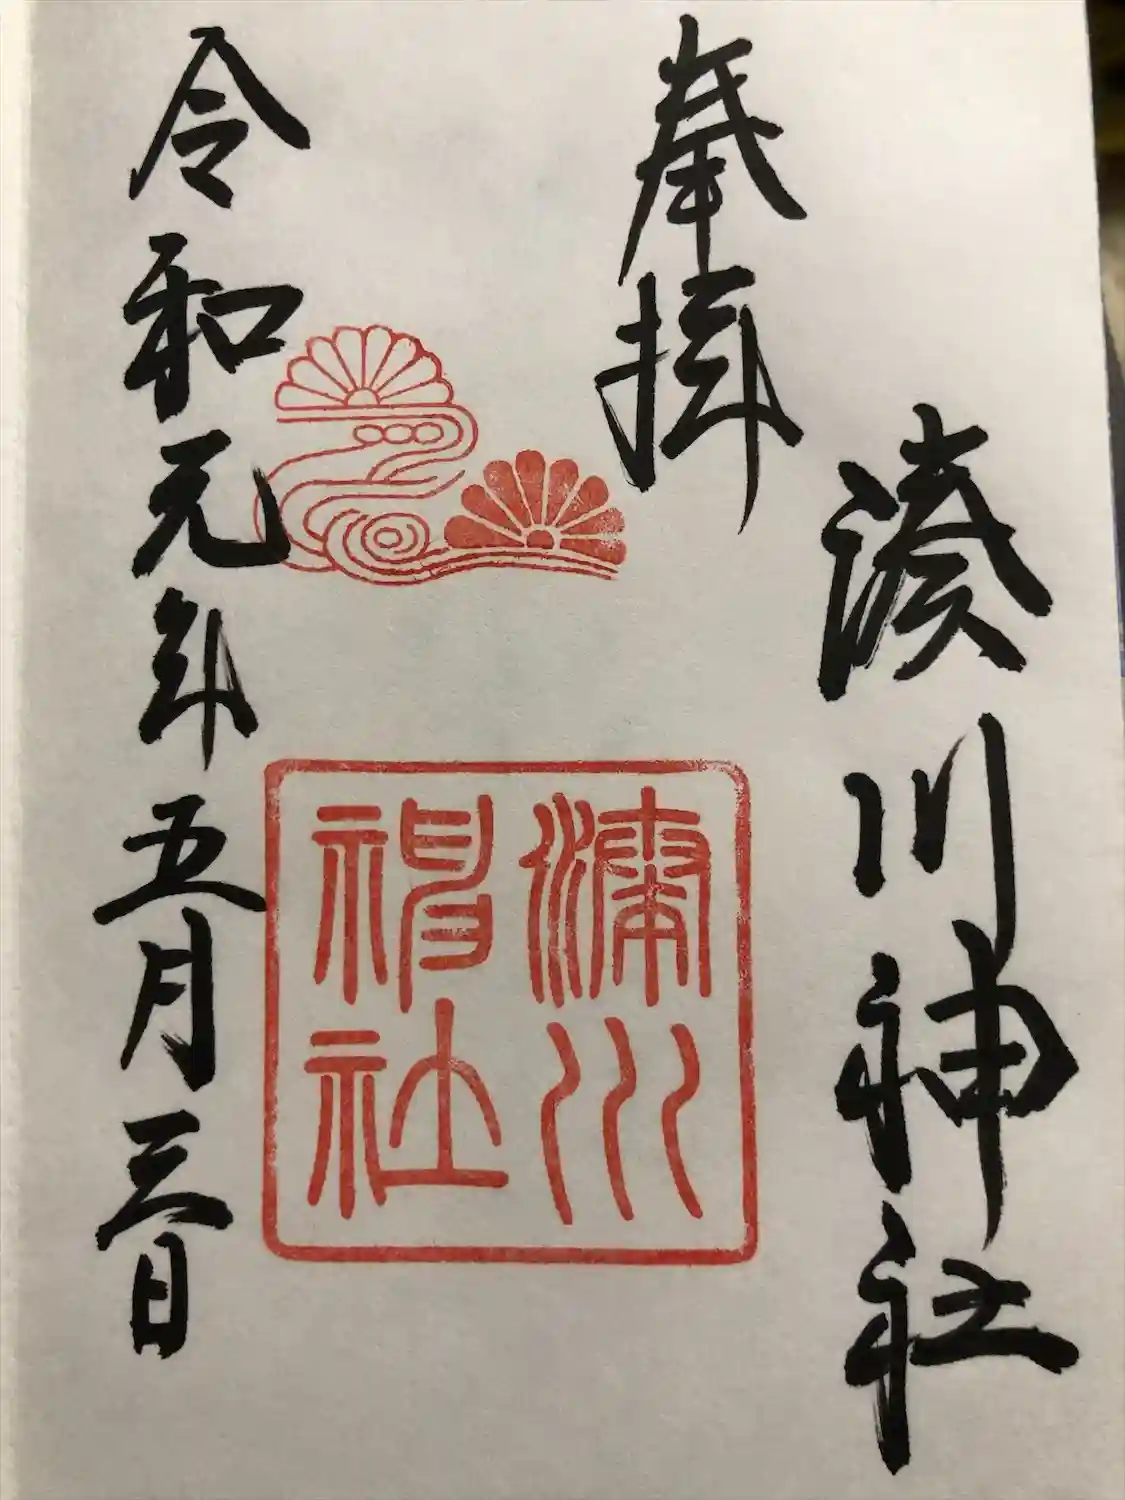 湊川神社
奉拝
湊川神社
令和元年五月三日